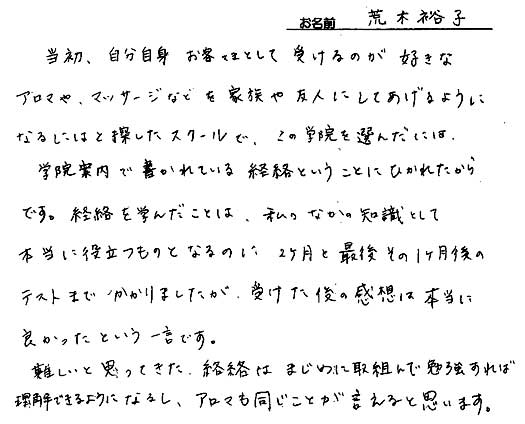 お名前 荒木裕子
当初、自分自身 お客さまとして 受けるのが 好きな
アロマや、マッサージなどを 家族や 友人にしてあげるように
なるにはと探したスクールで、この学院を選んだには、
学院案内で書かれている 経絡ということにひかれたから
です。経絡を学んだことは、私のなかの知識として
本当に役立つものとなるのに 2ヶ月と最後その1ヶ月後の
テストまでかかりましたが、受けた後の感想は本当に
良かったという一言です。
難しいと思ってきた、経絡はまじめに取組んで勉強すれば
理解できるようになるし、アロマも同じことが言えると思います。